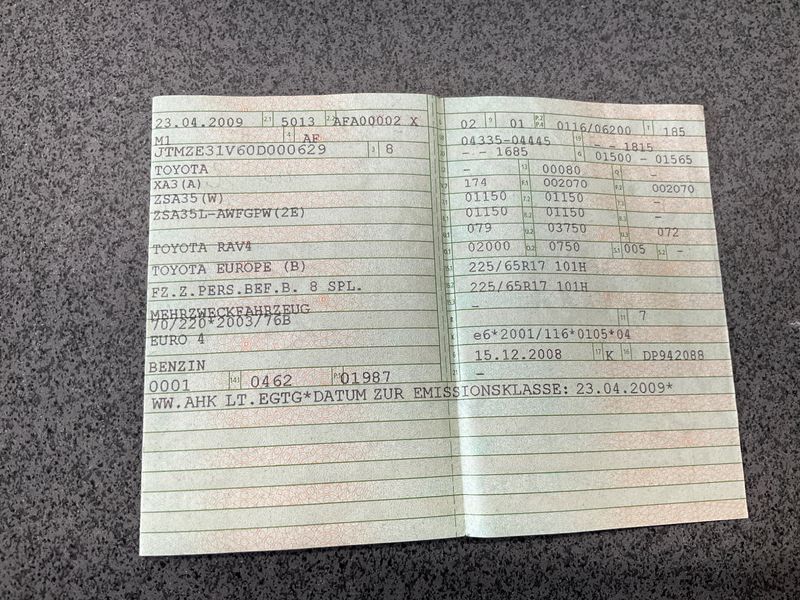 23.04.2009 2.1 5013 2.2 AFA00002 X
M1 4 AF
JTMZE31V60D000629 3 8
TOYOTA
XA3(A)
ZSA35(W)
ZSA35L-AWFGPW(2E)
TOYOTA RAV4
TOYOTA EUROPE (B)
FZ.Z.PERS.BEF.B. 8 SPL.
MEHRZWECKFAHRZEUG
70/220*2003/76B
EURO 4
BENZIN
0001 14.1 0462 P.1 01987
WW.AHK LT.EGTG*DATUM ZUR EMISSIONSKLASSE: 23.04.2009*
02 9 01 P.2 P.4 0116/06200 T 185
04335-04445 19 - - 1815
- - 1685 G 01500 - 01565
- 13 00080 Q -
174 F.1 002070 F.2 002070
01150 7.2 01150 7.3 -
01150 8.2 01150 8.3 -
079 U.2 03750 U.3 072
02000 O.2 0750 S.1 005 S.2 -
225/65R17 101H
225/65R17 101H
-
11 7
K e6*2001/116*0105*04
6 15.12.2008 17 K 16 DP942088
21 -